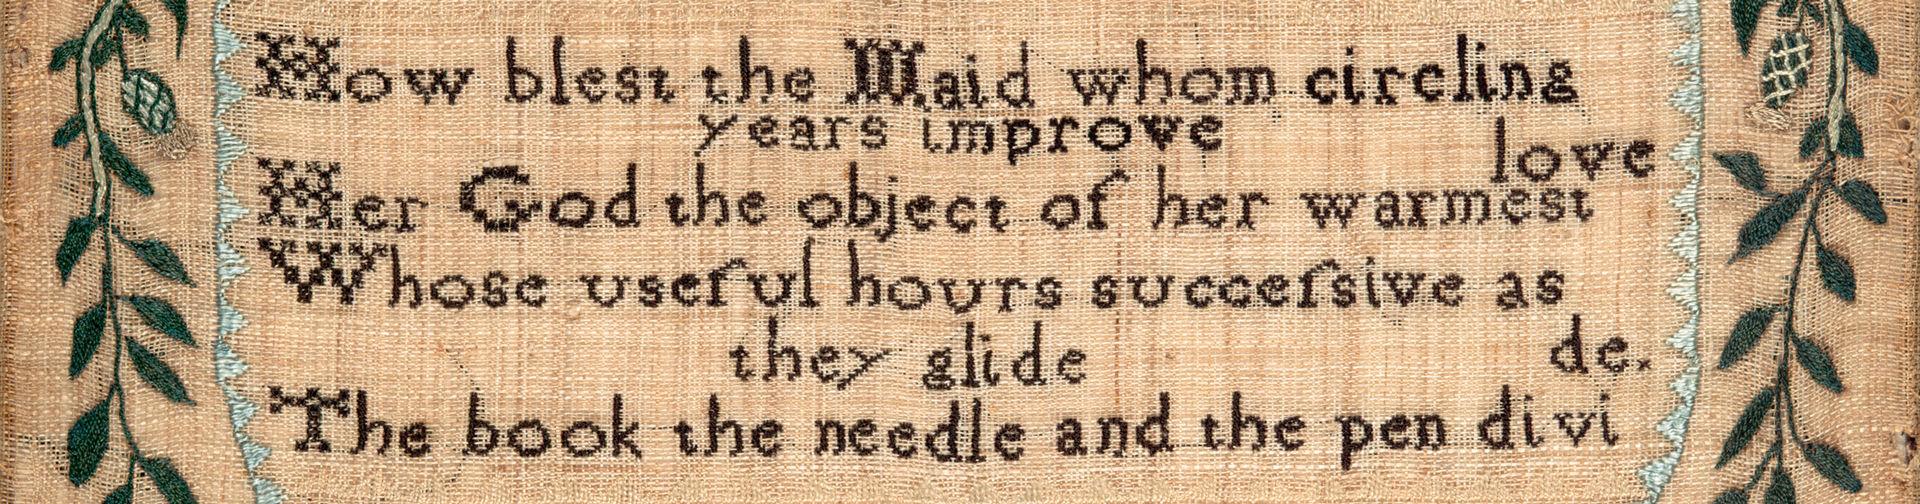 How blest the Maid whom circling
years improve
love
Her God the object of her warmest
Whose useful hours succeſsive as
they glide
de.
The book the needle and the pen divi